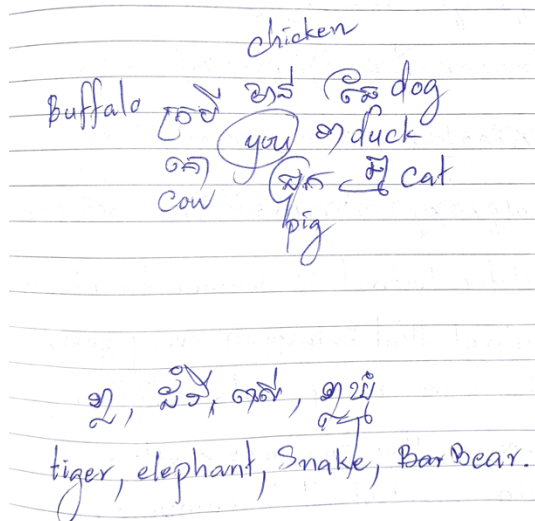 chicken
Buffalo ក្របី មាន់ ឆ្កែ dog
គោ you ទា duck
cow ជ្រូក ឆ្មា cat
pig
ខ្លា, ដំរី, ពស់, ខ្លាឃ្មុំ
tiger, elephant, Snake, Bar Bear.